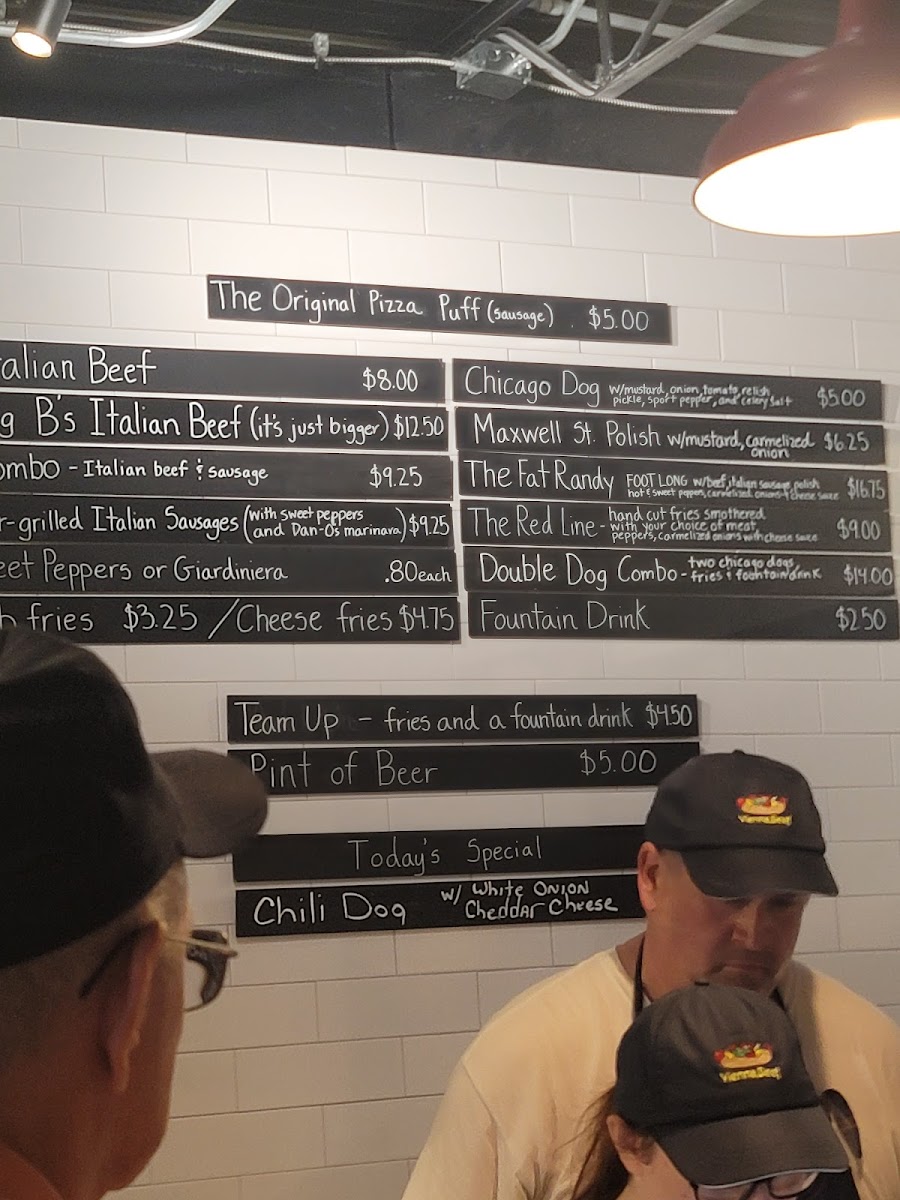 The Original Pizza Puff (sausage) . $5.00
alian Beef $8.00
g B's Italian Beef (it's just bigger) $12.50
ombo - Italian beef & sausage $9.25
r-grilled Italian Sausages (with sweet peppers
and Dan-O's marinara) $9.25
eet Peppers or Giardiniera .80 each
h fries $3.25 / Cheese fries $4.75
Chicago Dog w/mustard, onion, tomato, relish
pickle, sport pepper, and celery salt $5.00
Maxwell St. Polish w/mustard, carmelized
onion $6.25
The Fat Randy FOOT LONG w/beef, italian sausage, polish
hot & sweet peppers, carmelized onions & cheese sauce $16.75
The Red Line - hand cut fries smothered
with your choice of meat,
peppers, carmelized onions with cheese sauce $9.00
Double Dog Combo - two chicago dogs
fries & fountain drink $14.00
Fountain Drink $2.50
Team Up - fries and a fountain drink $4.50
Pint of Beer $5.00
Today's Special
Chili Dog w/ White Onion
Cheddar Cheese
Vienna Beef
Vienna Beef